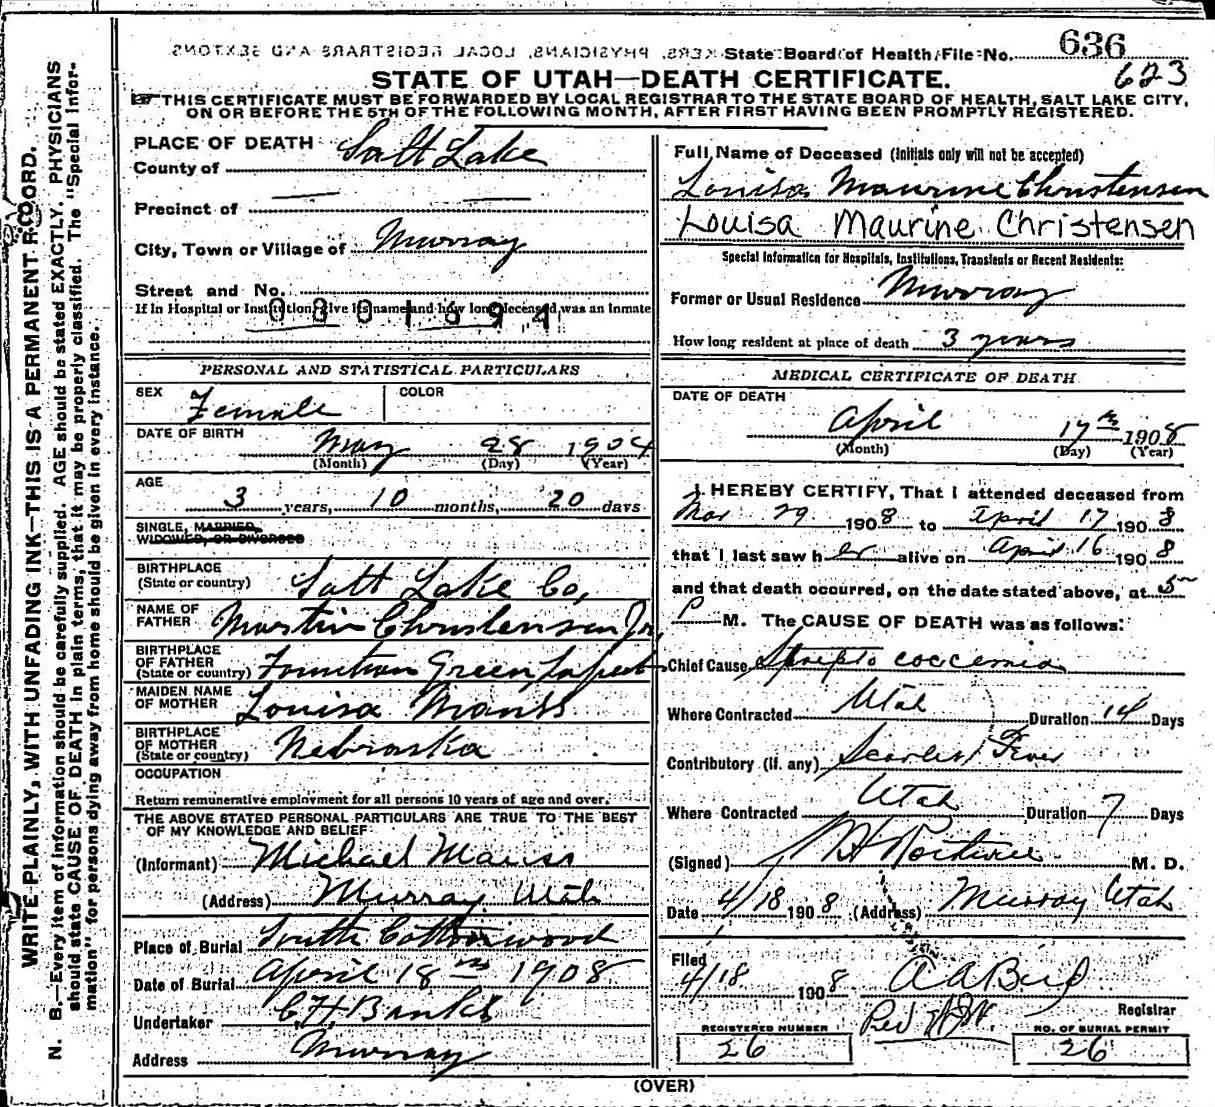 State Board of Health File No. 636
623
STATE OF UTAH—DEATH CERTIFICATE.
THIS CERTIFICATE MUST BE FORWARDED BY LOCAL REGISTRAR TO THE STATE BOARD OF HEALTH, SALT LAKE CITY,
ON OR BEFORE THE 5TH OF THE FOLLOWING MONTH, AFTER FIRST HAVING BEEN PROMPTLY REGISTERED.
WRITE PLAINLY, WITH UNFADING INK—THIS IS A PERMANENT RECORD.
N. B.—Every item of information should be carefully supplied. AGE should be stated EXACTLY. PHYSICIANS
should state CAUSE OF DEATH in plain terms, that it may be properly classified. The "Special Infor-
mation" for persons dying away from home should be given in every instance.
PLACE OF DEATH
County of Salt Lake
Precinct of
City, Town or Village of Murray
Street and No.
If in Hospital or Institution, give its name and how long deceased was an inmate
0801694
PERSONAL AND STATISTICAL PARTICULARS
SEX Female COLOR
DATE OF BIRTH May 28 1904
(Month) (Day) (Year)
AGE
3 years, 10 months, 20 days
SINGLE, MARRIED,
WIDOWED, OR DIVORCED
BIRTHPLACE
(State or country) Salt Lake Co,
NAME OF
FATHER Martin Christensen Jr.
BIRTHPLACE
OF FATHER
(State or country) Fountain Green
MAIDEN NAME
OF MOTHER Louisa Mauss
BIRTHPLACE
OF MOTHER
(State or country) Nebraska
OCCUPATION
Return remunerative employment for all persons 10 years of age and over.
THE ABOVE STATED PERSONAL PARTICULARS ARE TRUE TO THE BEST
OF MY KNOWLEDGE AND BELIEF
(Informant) Michael Mauss
(Address) Murray Utah
Place of Burial South Cottonwood
Date of Burial April 18th 1908
Undertaker C H Banks
Address Murray
Full Name of Deceased (Initials only will not be accepted)
Louisa Maurine Christensen
Louisa Maurine Christensen
Special Information for Hospitals, Institutions, Transients or Recent Residents:
Former or Usual Residence Murray
How long resident at place of death 3 years
MEDICAL CERTIFICATE OF DEATH
DATE OF DEATH
April 17th 1908
(Month) (Day) (Year)
I HEREBY CERTIFY, That I attended deceased from
Mar 29 1908 to April 17 1908
that I last saw her alive on April 16 1908
and that death occurred, on the date stated above, at 5
P M. The CAUSE OF DEATH was as follows:
Chief Cause Strepto coccemia
Where Contracted Utah Duration 14 Days
Contributory (if any) Scarlet Fever
Where Contracted Utah Duration 7 Days
(Signed) M. D.
Date 4/18 1908 (Address) Murray Utah
Filed
4/18 1908
Registrar
REGISTERED NUMBER
26
NO. OF BURIAL PERMIT
26
(OVER)